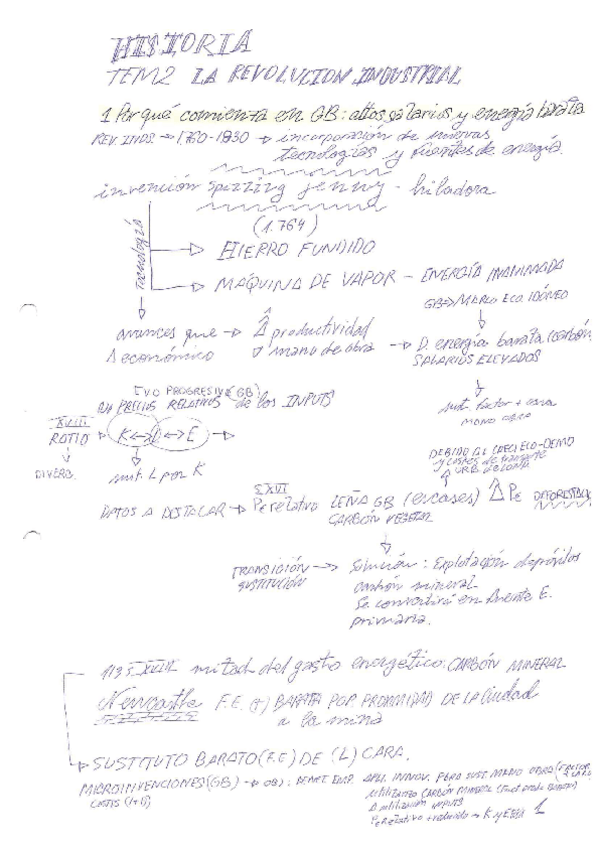 HISTORIA
TEM2 LA REVOLUCION INDUSTRIAL
1. Por qué comienza en GB: altos salarios y energía barata
REV. INDS. → 1760-1830 → incorporación de nuevas
tecnologías y fuentes de energía.
invención spinning jenny - hiladora
(1.764)
Tecnología
→ HIERRO FUNDIDO
→ MÁQUINA DE VAPOR - ENERGÍA INANIMADA
GB → Marco Eco. IDÓNEO
avances que → Δ productividad
Δ económico ∇ mano de obra → D. energía barata (carbón)
SALARIOS ELEVADOS
sust. factor + cara
MANO OBRA
EVO PROGRESIVO (GB)
PRECIOS RELATIVOS de los INPUTS
XVIII
RATIO K↔L↔E →
DIVERG.
sust. L por K
DEBIDO AL CRECI ECO-DEMO
y costes de transporte
DATOS A DESTACAR → P. relativo LEÑA GB (escases) Δ Pe DEFORESTAC.
S.XVI
CARBÓN VEGETAL
TRANSICIÓN → Solución: Explotación depósitos
SUSTITUCIÓN carbón mineral
Se convertirá en fuente E.
primaria.
S. XVIII mitad del gasto energético: CARBÓN MINERAL
Newcastle F.E. (+) BARATA POR PROXIMIDAD DE LA ciudad
a la mina
→ SUSTITUTO BARATO (F.E) DE (L) CARA.
MICROINVENCIONES (GB)
Δ utilización INPUTS
1